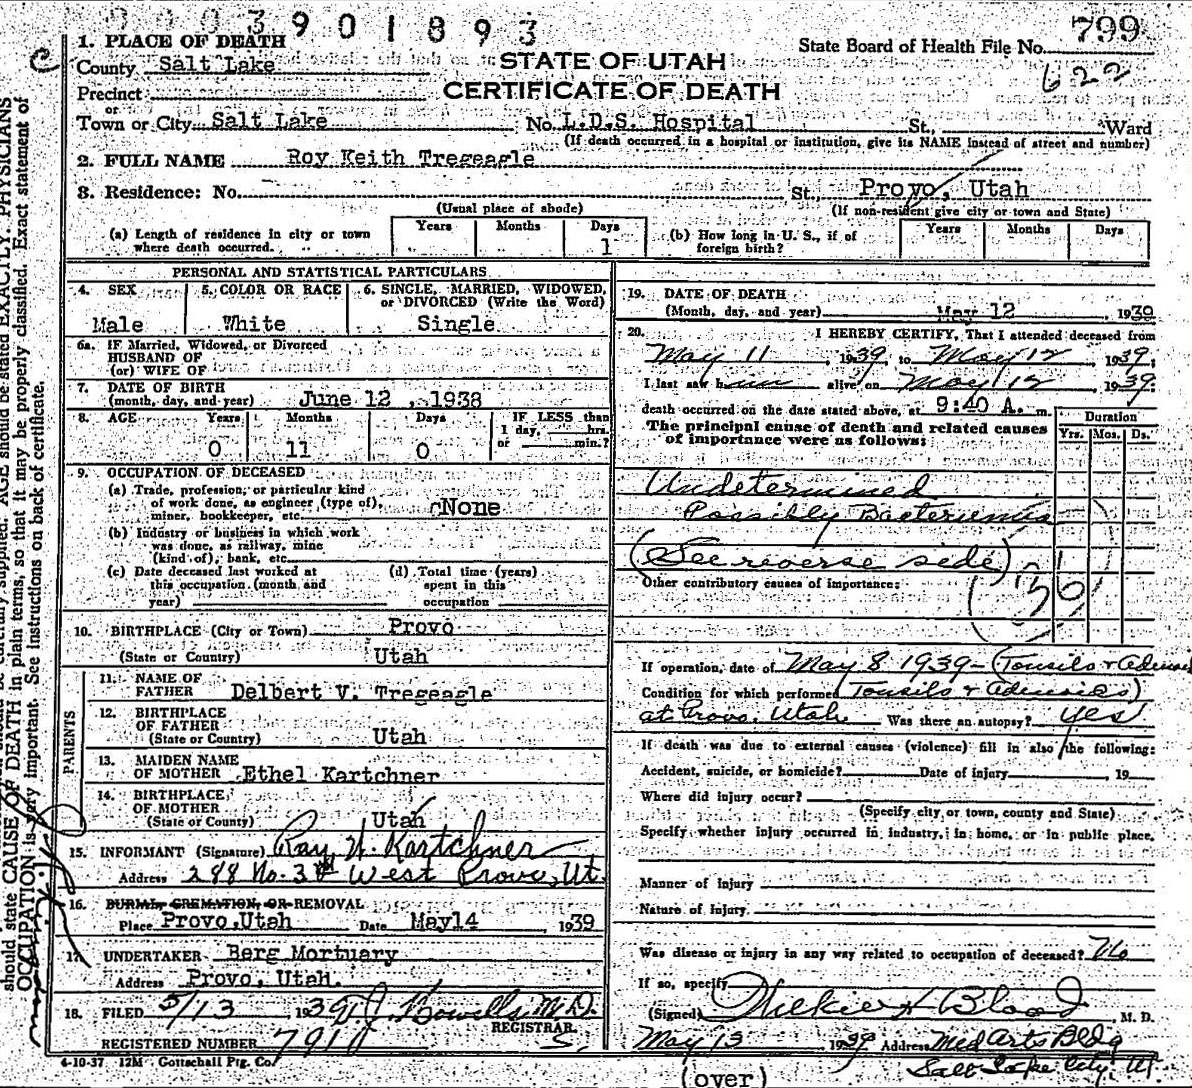 0003901893
1. PLACE OF DEATH
County Salt Lake
Precinct
or
Town or City Salt Lake No. L.D.S. Hospital St., Ward
(If death occurred in a hospital or institution, give its NAME instead of street and number)
STATE OF UTAH
CERTIFICATE OF DEATH
State Board of Health File No. 799
622
2. FULL NAME Roy Keith Tregeagle
3. Residence: No. St., Provo, Utah
(Usual place of abode) (If non-resident give city or town and State)
(a) Length of residence in city or town where death occurred. Years Months Days 1
(b) How long in U. S., if of foreign birth? Years Months Days
PERSONAL AND STATISTICAL PARTICULARS
4. SEX Male
5. COLOR OR RACE White
6. SINGLE, MARRIED, WIDOWED, or DIVORCED (Write the Word) Single
6a. IF Married, Widowed, or Divorced
HUSBAND OF
(or) WIFE OF
7. DATE OF BIRTH
(month, day, and year) June 12, 1938
8. AGE Years 0 Months 11 Days 0
IF LESS than
1 day, hrs.
or min.?
9. OCCUPATION OF DECEASED
(a) Trade, profession, or particular kind
of work done, as engineer (type of),
miner, bookkeeper, etc. None
(b) Industry or business in which work
was done, as railway, mine
(kind of), bank, etc.
(c) Date deceased last worked at
this occupation (month and
year)
(d) Total time (years)
spent in this
occupation
10. BIRTHPLACE (City or Town) Provo
(State or Country) Utah
PARENTS
11. NAME OF
FATHER Delbert V. Tregeagle
12. BIRTHPLACE
OF FATHER
(State or Country) Utah
13. MAIDEN NAME
OF MOTHER Ethel Kartchner
14. BIRTHPLACE
OF MOTHER
(State or County) Utah
15. INFORMANT (Signature) Ray H. Kartchner
Address 288 No. 3d West Provo, Ut.
16. BURIAL, CREMATION, OR REMOVAL
Place Provo, Utah Date May 14, 1939
17. UNDERTAKER Berg Mortuary
Address Provo, Utah.
18. FILED 5/13 1939 Howells M.D.
REGISTRAR.
REGISTERED NUMBER
4-10-37 12M Gottschall Ptg. Co.
19. DATE OF DEATH
(Month, day, and year) May 12, 1939
20. I HEREBY CERTIFY, That I attended deceased from
May 11, 1939, to May 12 1939,
I last saw him alive on May 12 1939,
death occurred on the date stated above, at 9:40 A. m.
The principal cause of death and related causes
of importance were as follows:
Duration
Yrs. Mos. Ds.
Undetermined
Possibly
(See reverse side)
Other contributory causes of importance:
If operation, date of May 8 1939 - (Tonsils &
Condition for which performed Tonsils &
at Provo, Utah Was there an autopsy? Yes
If death was due to external causes (violence) fill in also the following:
Accident, suicide, or homicide? Date of injury, 19
Where did injury occur?
(Specify city or town, county and State)
Specify whether injury occurred in industry, in home, or in public place.
Manner of Injury
Nature of Injury
Was disease or injury in any way related to occupation of deceased? No
If so, specify
(Signed) Wilkie H Blood, M. D.
May 13 1939 Address Med Arts Bldg
Salt Lake City, Ut.
(over)
should state CAUSE OF DEATH in plain terms, so that it may be properly classified. Exact statement of
OCCUPATION is very important. See instructions on back of certificate.